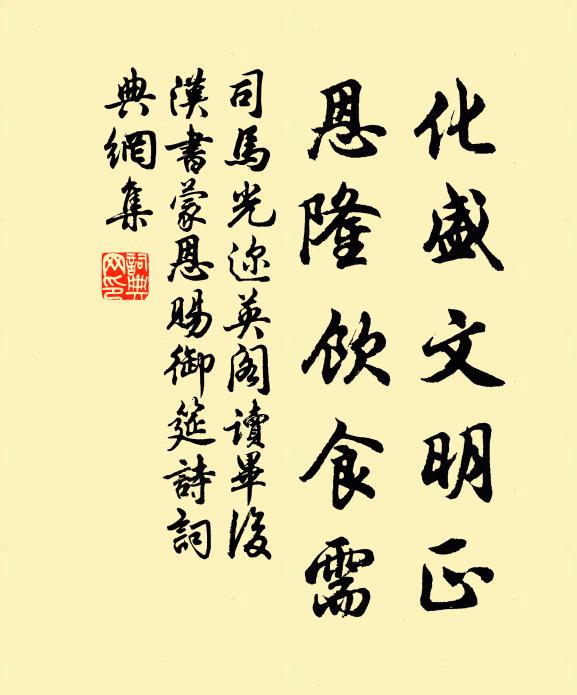 化盛文明正
恩隆飲食需
司馬光迩英阁讀畢後
漢書蒙恩賜御筵詩詞
典網集
詞典網印